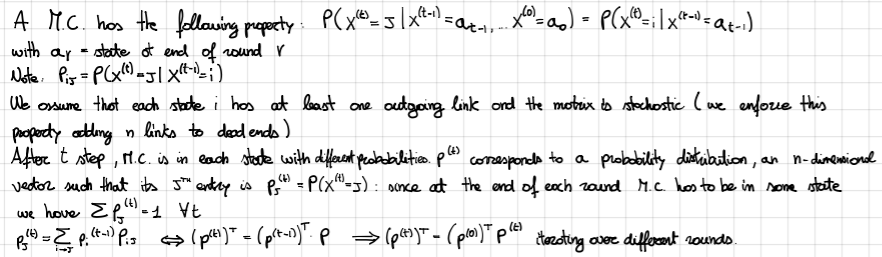 A M.C. has the following property: P(X^(t)=J | X^(t-1)=a_{t-1}, ... X^(0)=a_0) = P(X^(t)=i | X^(t-1)=a_{t-1})
with a_r = state at end of round r
Note: P_{iJ} = P(X^(t)=J | X^(t-1)=i)
We assume that each state i has at least one outgoing link and the matrix is stochastic (we enforce this
property adding n links to dead ends)
After t step, M.C. is in each state with different probabilities. P^(t) corresponds to a probability distribution, an n-dimensional
vector such that its J^TH entry is P_J^(t) = P(X^(t)=J): since at the end of each round M.C. has to be in some state
we have Σ P_J^(t) = 1 ∀t
P_J^(t) = Σ_{i→J} P_i^(t-1) P_{iJ} ⇔ (P^(t))^T = (P^(t-1))^T · P ⇒ (P^(t))^T = (P^(0))^T P^(t) iterating over different rounds.